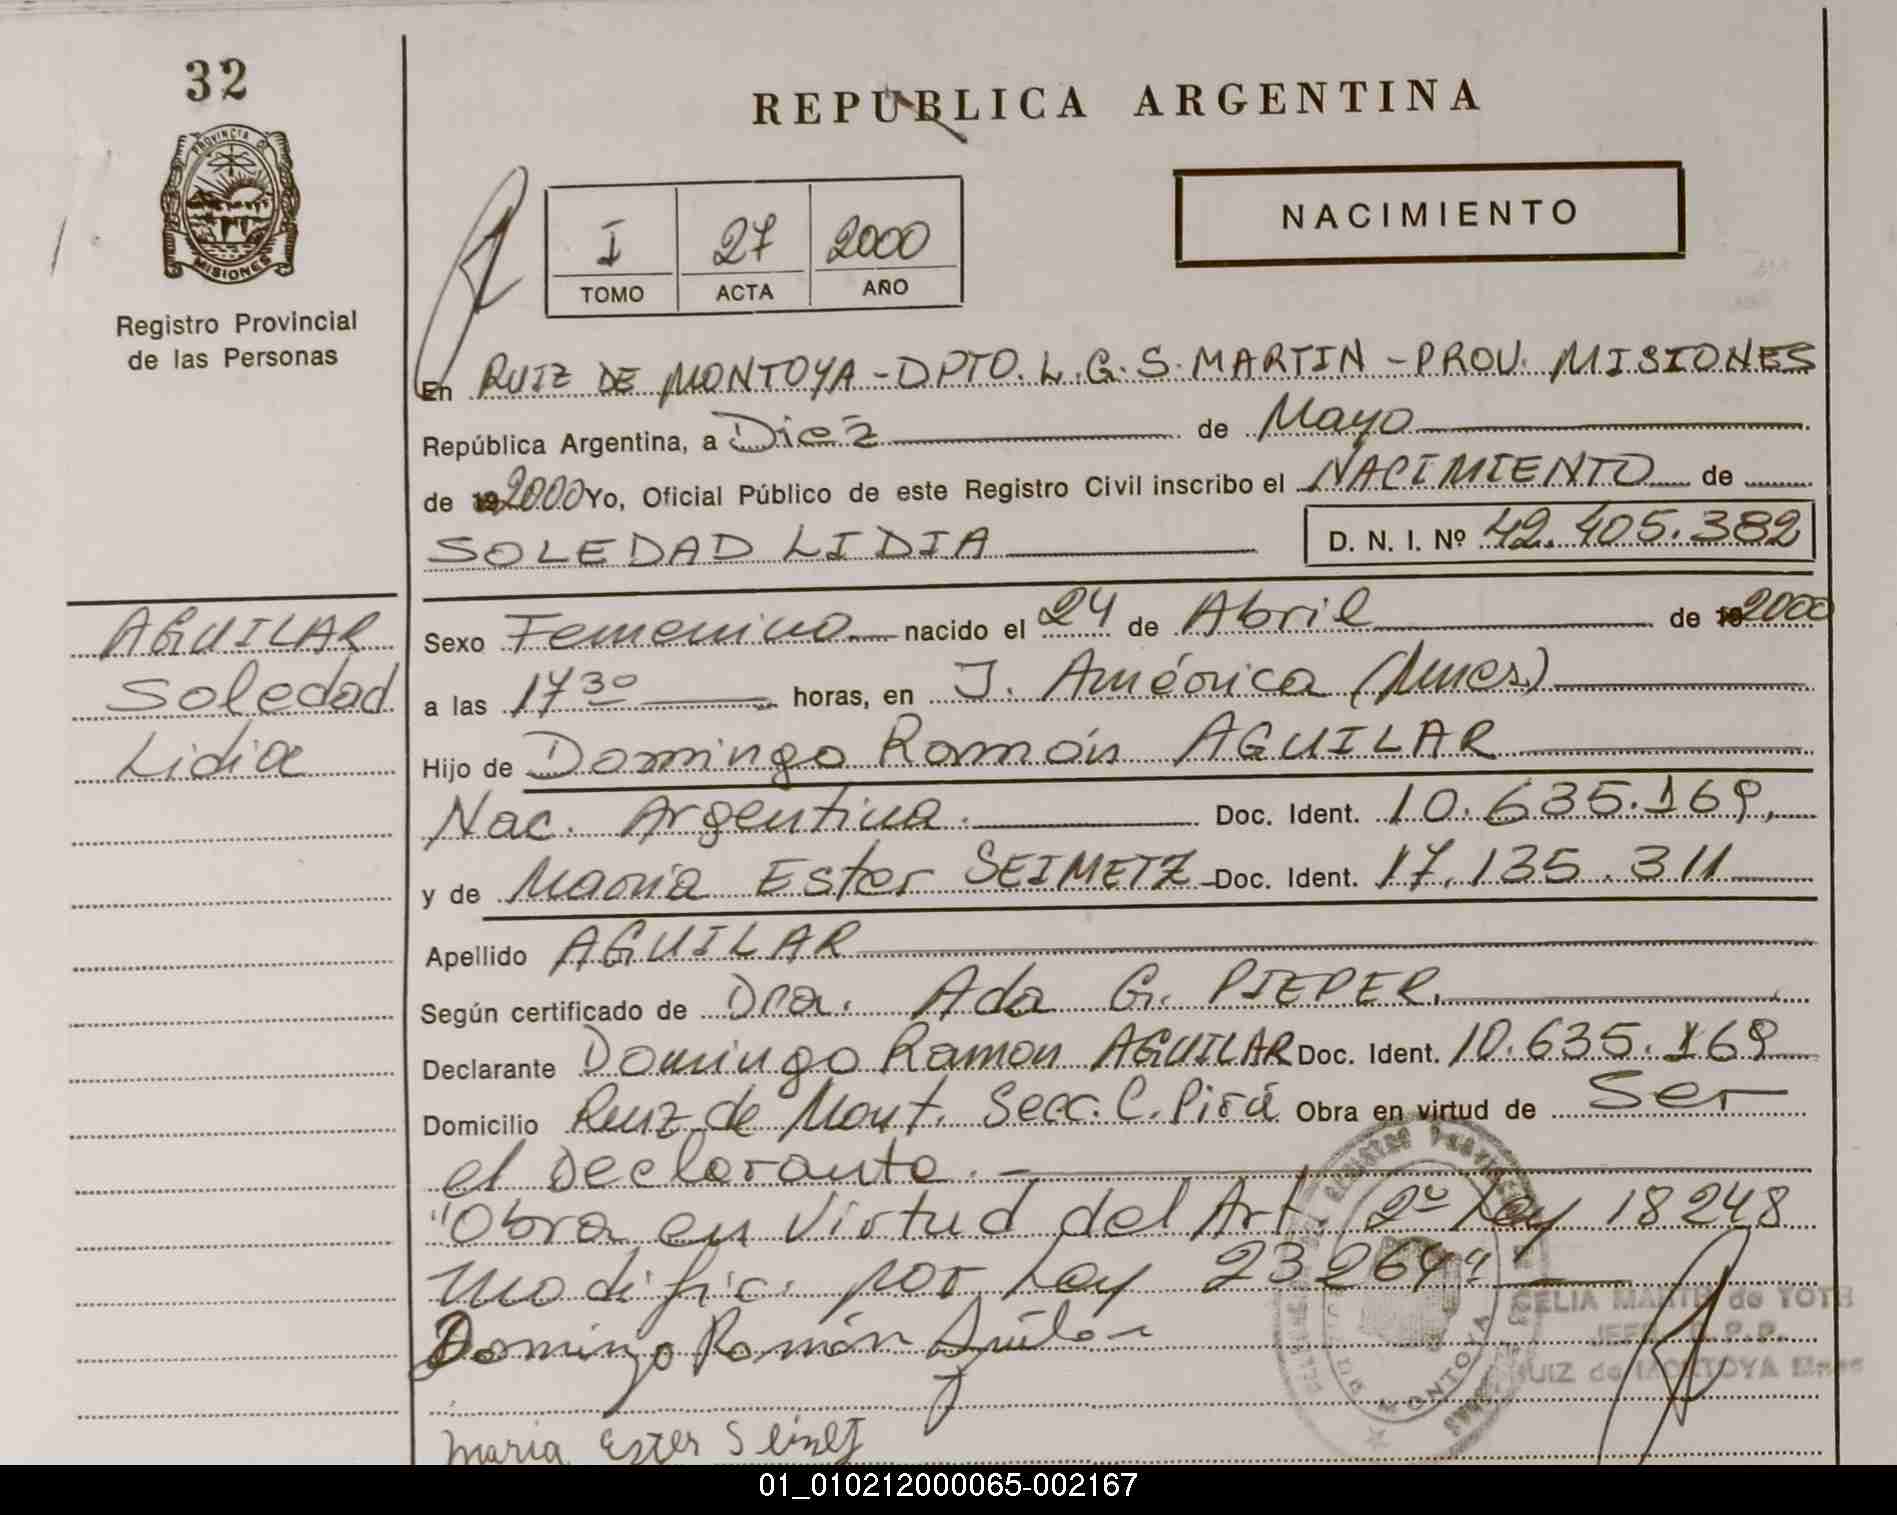 32
PROVINCIA D
MISIONES
Registro Provincial
de las Personas
REPUBLICA ARGENTINA
I 27 2000
TOMO ACTA AÑO
NACIMIENTO
En RUIZ DE MONTOYA - DPTO. L. G. S. MARTIN - PROV. MISIONES
República Argentina, a Diez de Mayo
de 192000 Yo, Oficial Público de este Registro Civil inscribo el NACIMIENTO de
SOLEDAD LIDIA D. N. I. Nº 42.405.382
AGUILAR
Soledad
Lidia
Sexo Femenino nacido el 24 de Abril de 192000
a las 17 30 horas, en J. América (Mnes)
Hijo de Domingo Ramón AGUILAR
Nac. Argentina. Doc. Ident. 10.635.169,
y de María Ester SEIMETZ Doc. Ident. 17.135.311
Apellido AGUILAR
Según certificado de Dra. Ada G. PIEPER.
Declarante Domingo Ramon AGUILAR Doc. Ident. 10.635.169
Domicilio Ruiz de Mont. Secc. C. Pirá Obra en virtud de Ser
el Declarante. -
"Obra en virtud del Art. 2º Ley 18248
modific. por Ley 23264"
Domingo Ramón
CELIA MARTH de YOTH
JEFE R.P.P.
RUIZ de MONTOYA Mnes
DE MONTOYA
maria Ester
01_010212000065-002167